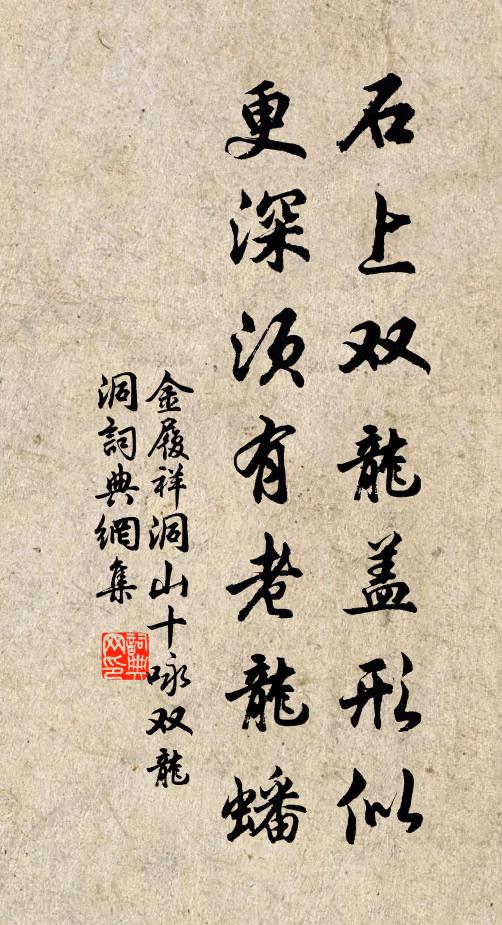 石上双龍盖形似
更深须有老龍蟠
金履祥洞山十咏双龍
洞詞典網集
詞典网印